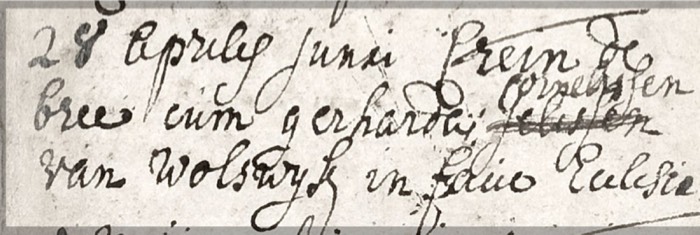 28 Aprilis junxi Krein de
bree cum gerhardus cornelissen
van Wolswyk in facie Eclesie